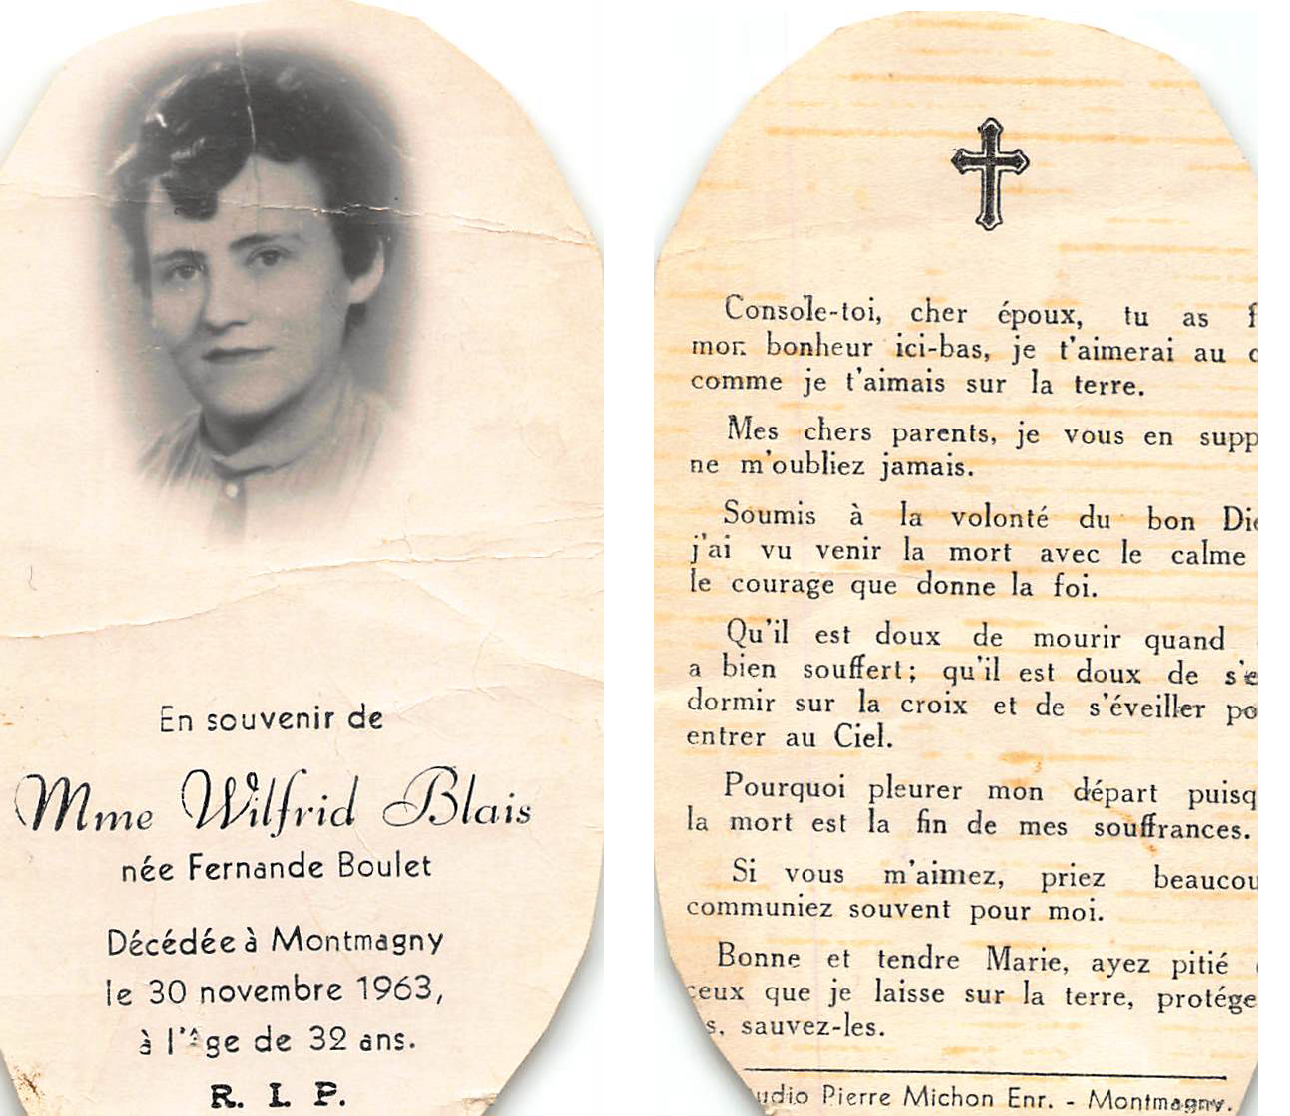 En souvenir de
Mme Wilfrid Blais
née Fernande Boulet
Décédée à Montmagny
le 30 novembre 1963,
à l'âge de 32 ans.
R. I. P.
Console-toi, cher époux, tu as
mon bonheur ici-bas, je t'aimerai au
comme je t'aimais sur la terre.
Mes chers parents, je vous en supp
ne m'oubliez jamais.
Soumis à la volonté du bon Die
j'ai vu venir la mort avec le calme
le courage que donne la foi.
Qu'il est doux de mourir quand
a bien souffert; qu'il est doux de s'e
dormir sur la croix et de s'éveiller po
entrer au Ciel.
Pourquoi pleurer mon départ puisq
la mort est la fin de mes souffrances.
Si vous m'aimez, priez beaucou
communiez souvent pour moi.
Bonne et tendre Marie, ayez pitié
ceux que je laisse sur la terre, protége
s, sauvez-les.
udio Pierre Michon Enr. - Montmagny.